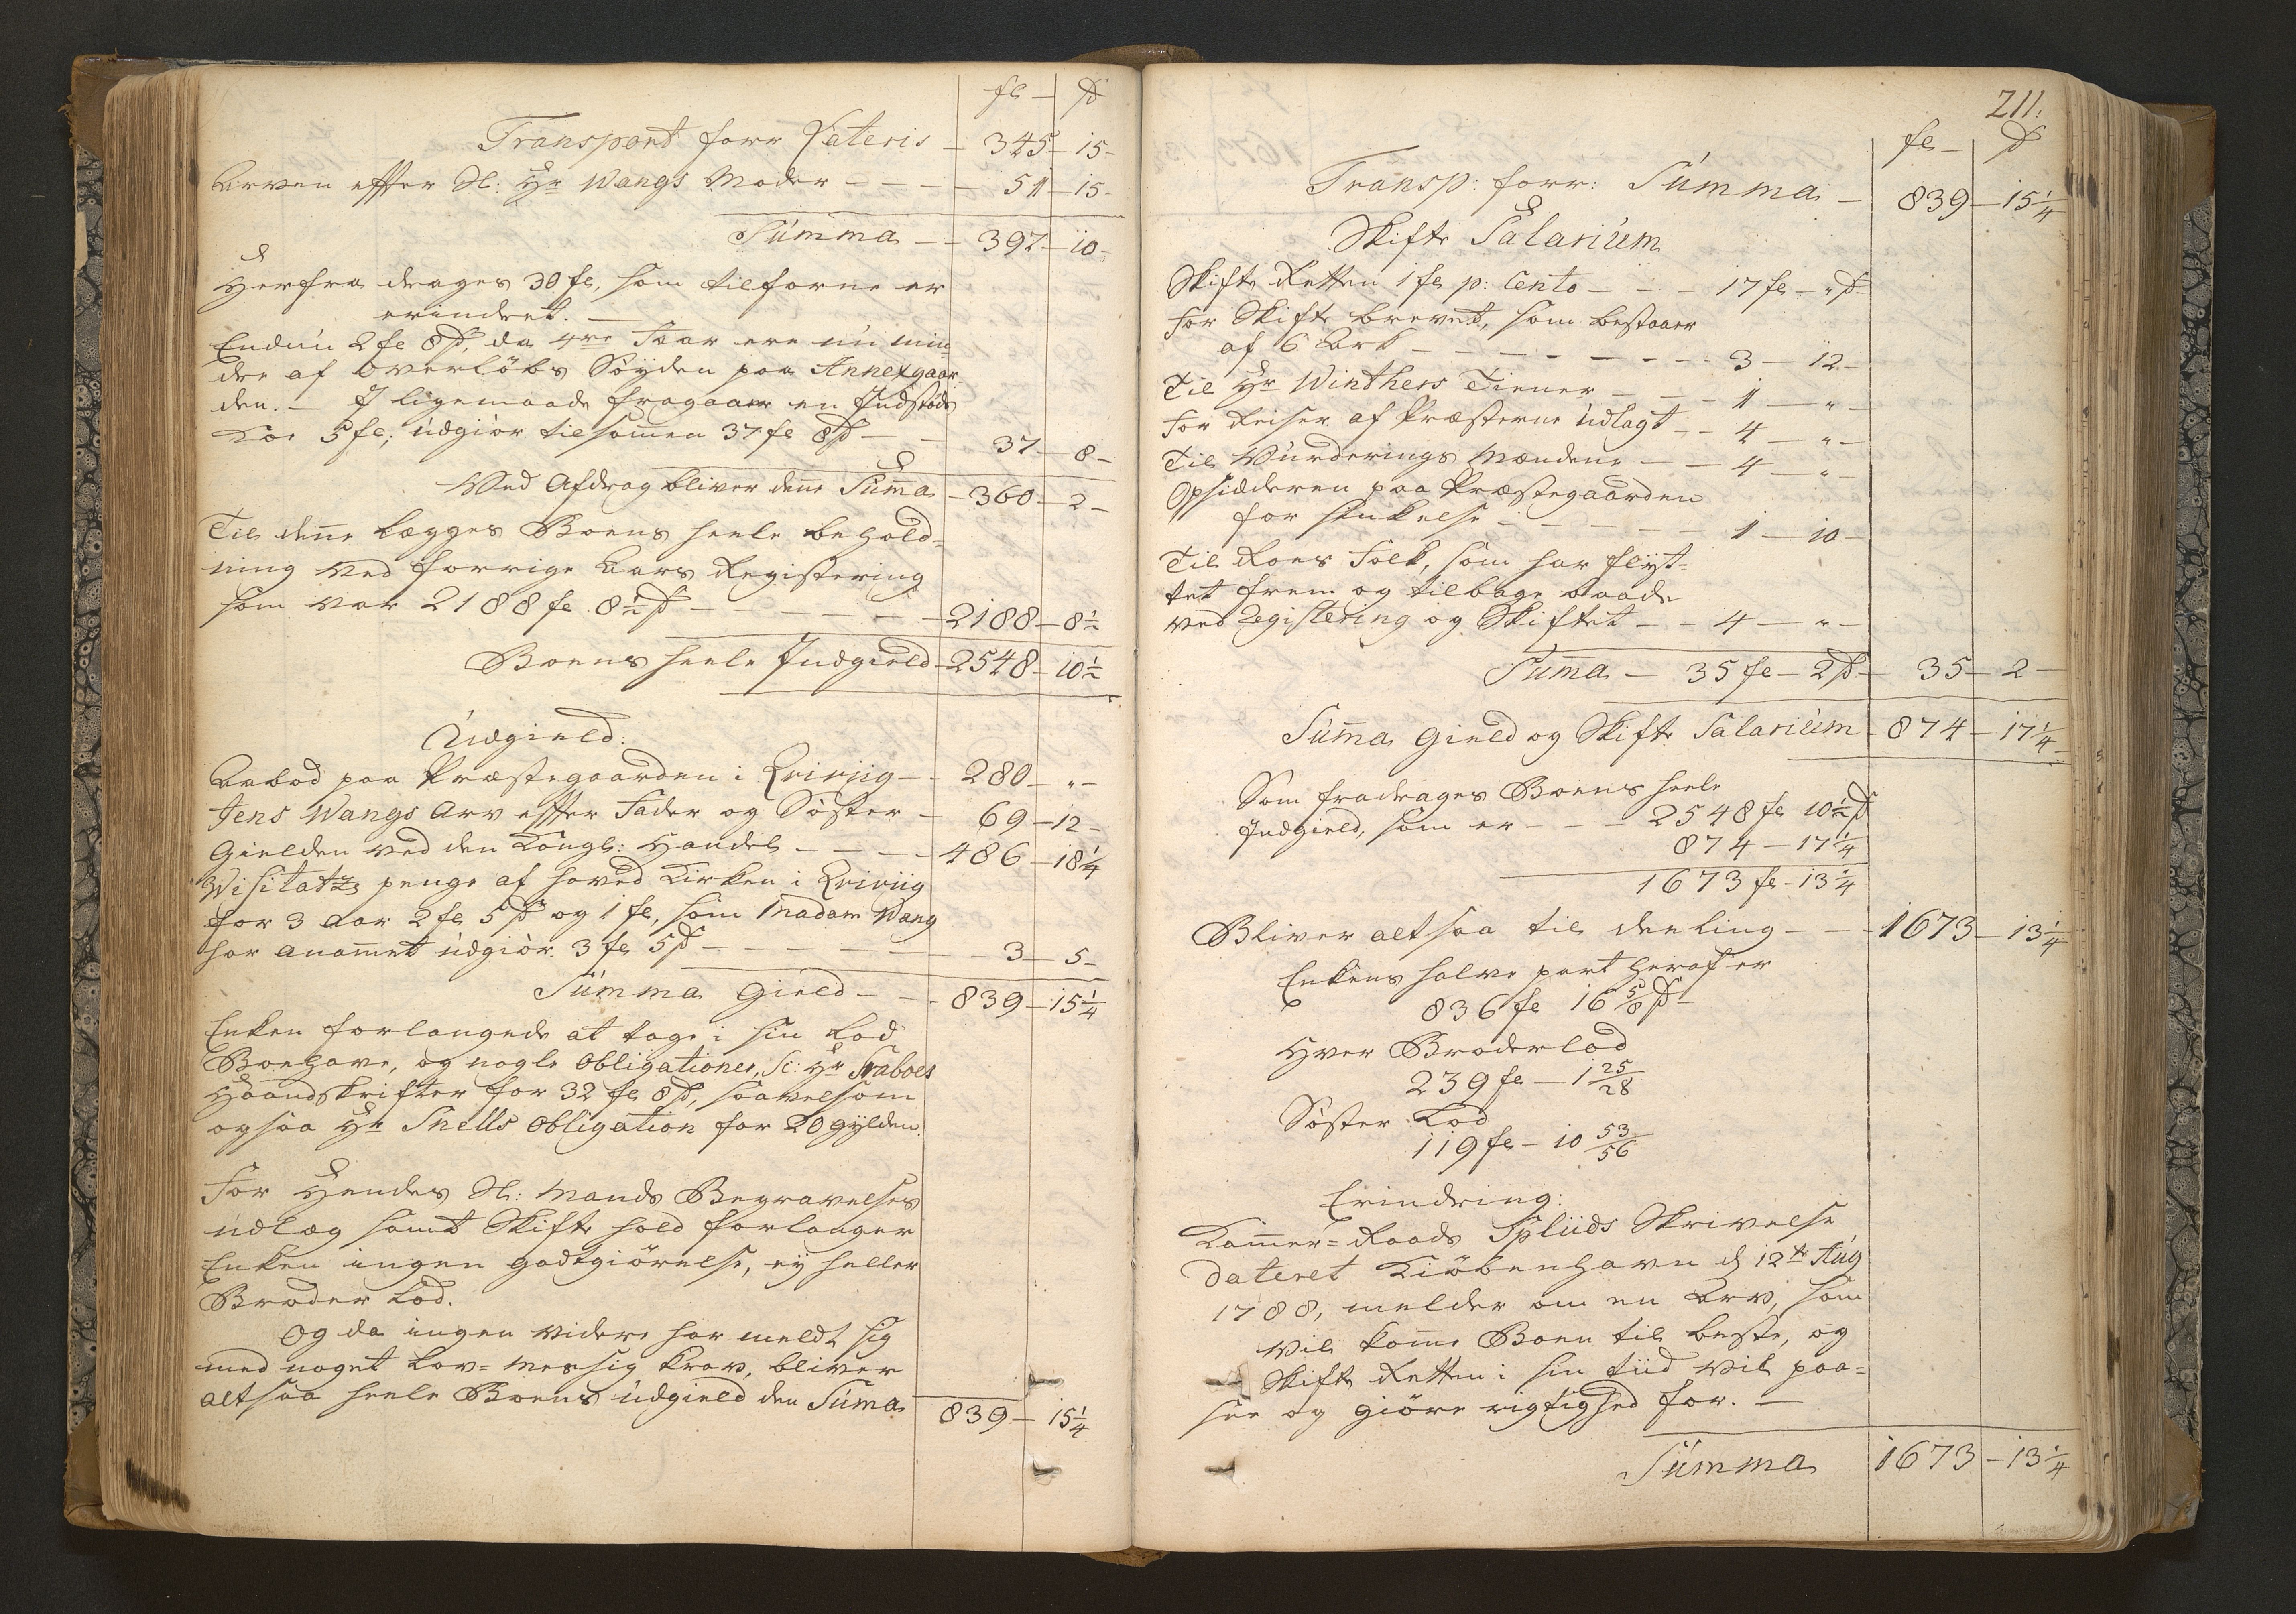 fl — s
Transport forr Lateris — 345 — 15 —
Arven efter Sl: Hr Wangs Moder — — — 51 — 15 —
Summa — — 397 — 10 —
Herfra drages 30 fl, som tilforne er
erindret. —
Endnu 2 fl 8 s, da 4re Faar ere nu min=
dre af Overløbs Søyden paa Annexgaar
den. — I ligemaade fragaaer en Indstøds
Koe 5 fl, udgiør tilsamen 37 fl 8 s — — 37 — 8 —
Ved Afdrag bliver dene Suma — 360 — 2 —
Til dene lægges Boens heele behold=
ning ved forrige Aars Registering
som var 2188 fl. 8 1/2 s — — — — 2188 — 8 1/2
Boens heele Indgield — 2548 — 10 1/2
Udgield:
Aabod paa Præstegaarden i Qviviig — — 280 — " —
Jens Wangs Arv efter Fader og Søster — 69 — 12 —
Gielden ved den Kongl: Handel — — — — 486 — 18 1/4
Visitatz penge af hoved Kirken i Qviviig
for 3 Aar 2 fl 5 s og 1 fl, som Madam Wang
har anamet udgiør 3 fl 5 s — — — — — 3 — 5 —
Summa Gield — — 839 — 15 1/4
Enken forlangede at tage i sin Lod
Boehave, og nogle Obligationer, sc: Hr Svaboes
Haandskrifter for 32 fl 8 s, saavelsom
ogsaa Hr Snells Obligation for 20 gylden.
For Hendes Sl: Mands Begravelses
udlæg samt Skifte hold forlanger
Enken ingen godtgiørelse, ey heller
Broder Lod.
Og da ingen videre har meldt sig
med noget Lov=messig krav, bliver
altsaa heele Boens udgield den Suma 839 — 15 1/4
211.
fl — s
Transp: forr: Summa — 839 — 15 1/4
Skifte Salarium
Skifte Retten 1 fl p: Cento — — — 17 fl — " s
For Skifte brevet, som bestaaer
af 6 Ark — — — — — — — — 3 — 12 —
Til Hr Winthers Tiener — — — 1 — " —
For Reiser af Præsterne udlagt — — 4 — " —
Til Vurderings Mændene — — 4 — " —
Opsidderen paa Præstegaarden
for skikelse — — — — — — 1 — 10 —
Til Roers Folk, som har flyt=
tet frem og tilbage baade
ved Registering og Skiftet — — 4 — " —
Suma — 35 fl — 2 s — 35 — 2 —
Suma Gield og Skifte Salarium — 874 — 17 1/4 —
Som fradrages Boens heele
Indgield, som er — — — 2548 fl 10 1/2 s
874 — 17 1/4
1673 fl — 13 1/4
Bliver altsaa til deeling — — — 1673 — 13 1/4
Enkens halve part heraf er
836 fl 16 5/8 s —
Hver Broderlod
239 fl — 1 25/28
Søster Lod
119 fl — 10 53/56
Erindring:
Kamer=Raads Spliids Skrivelse
dateret Kiøbenhavn d 12te Aug
1788, melder om en Arv, som
vil kome Boen til beste, og
Skifte Retten i sin tiid vil paa=
see og giøre rigtighed for. —
Summa 1673 — 13 1/4